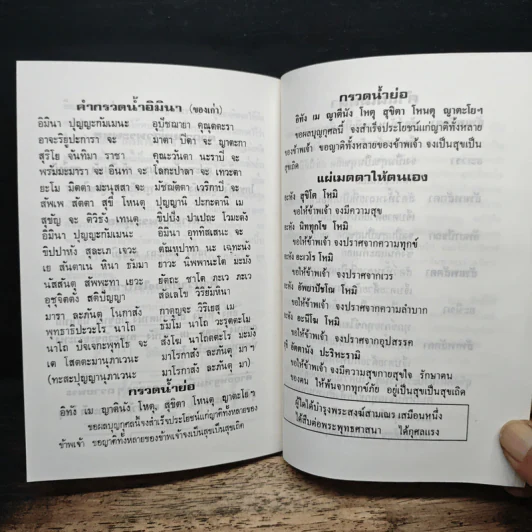 คำกรวดน้ำอิมินา (ของเก่า)
อิมินา ปุญญะกัมเมนะ อุปัชฌายา คุณุตตะรา
อาจะริยูปะการา จะ มาตา ปิตา จะ ญาตะกา
สุริโย จันทิมา ราชา คุณะวันตา นะราปิ จะ
พรัหมะมารา จะ อินทา จะ โลกะปาลา จะ เทวะตา
ยะโม มิตตา มะนุสสา จะ มัชฌัตตา เวริกาปิ จะ
สัพเพ สัตตา สุขี โหนตุ ปุญญานิ ปะกะตานิ เม
สุขัญ จะ ติวิธัง เทนตุ ขิปปัง ปาเปถะ โวมะตัง
อิมินา ปุญญะกัมเมนะ อิมินา อุททิสเสนะ จะ
ขิปปาหัง สุละเภ เจวะ ตัณหุปาทา นะ เฉทะนัง
เย สันตาเน หินา ธัมมา ยาวะ นิพพานะโต มะมัง
นัสสันตุ สัพพะทา เยวะ ยัตถะ ชาโต ภะเว ภะเว
อุชุจิตตัง สะติปัญญา สัลเลโข วิริยัมหินา
มารา ละภันตุ โนกาสัง กาตุญจะ วิริเยสุ เม
พุทธาธิปะวะโร นาโถ ธัมโม นาโถ วะรุตตะโม
นาโถ ปัจเจกะพุทโธ จะ สังโฆ นาโถตตะโร มะมัง
เต โสตตะมานุภาเวนะ มาโรกาสัง ละภันตุ มา ฯ
(ทะสะปุญญานุภาเวนะ มาโรกาสัง ละภันตุ มา)
กรวดน้ำย่อ
อิทัง เม ญาตินัง โหตุ สุขิตา โหนตุ ญาตะโย ฯ
ขอผลบุญกุศลนี้จงสำเร็จประโยชน์แก่ญาติทั้งหลายของ
ข้าพเจ้า ขอญาติทั้งหลายของข้าพเจ้าจงเป็นสุขเป็นสุขเถิด
กรวดน้ำย่อ
อิทัง เม ญาตินัง โหตุ สุขิตา โหนตุ ญาตะโย ฯ
ขอผลบุญกุศลนี้ จงสำเร็จประโยชน์แก่ญาติทั้งหลาย
ของข้าพเจ้า ขอญาติทั้งหลายของข้าพเจ้า จงเป็นสุขเป็น
สุขเถิด
แผ่เมตตาให้ตนเอง
อะหัง สุขิโต โหมิ
ขอให้ข้าพเจ้า จงมีความสุข
อะหัง นิททุกโข โหมิ
ขอให้ข้าพเจ้า จงปราศจากความทุกข์
อะหัง อะเวโร โหมิ
ขอให้ข้าพเจ้า จงปราศจากเวร
อะหัง อัพยาปัชโฌ โหมิ
ขอให้ข้าพเจ้า จงปราศจากความลำบาก
อะหัง อะนีโฆ โหมิ
ขอให้ข้าพเจ้า จงปราศจากอุปสรรค
สุขี อัตตานัง ปะริหะรามิ
ขอให้ข้าพเจ้า จงมีความสุขกายสุขใจ รักษาตน
ของตน ให้พ้นจากทุกข์ภัย อยู่เป็นสุขเป็นสุขเถิด
ผู้ใดได้บำรุงพระสงฆ์สามเณร เสมือนหนึ่ง
ได้สืบต่อพระพุทธศาสนา ได้กุศลแรง